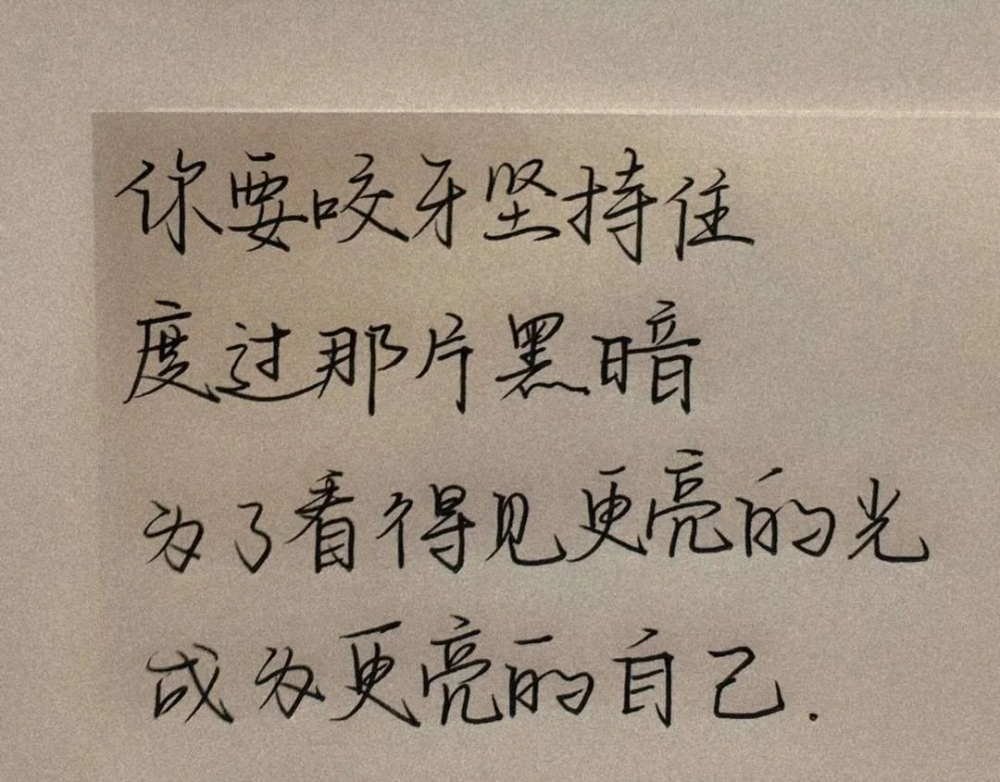 你要咬牙坚持住
度过那片黑暗
为了看得见更亮的光
成为更亮的自己.